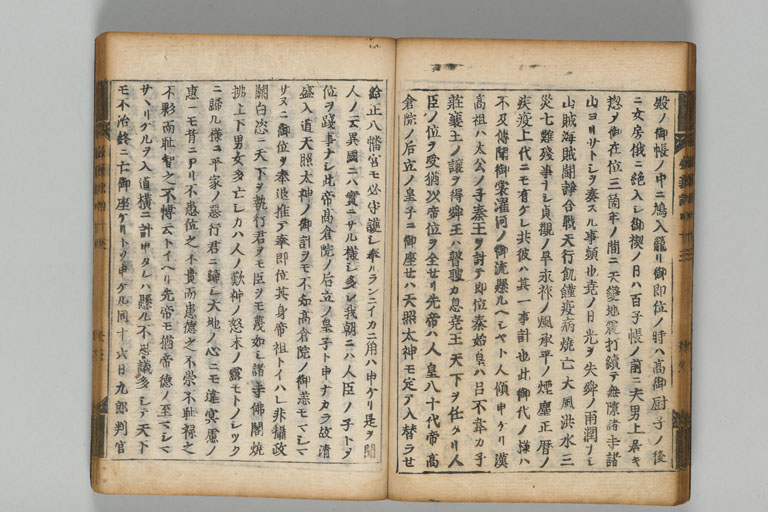 殿ノ御帳ノ中ニ鳩入籠リ御即位ノ時ハ高御厨子ノ後
ニ女房俄ニ絶入シ御禊ノ日ハ百子帳ノ前ニ夫男上居キ
惣ノ御在位三箇年ノ間ニ天變地震打續テ無隙諸寺諸
山ヨリサトシヲ奏スル事頻也堯ノ日光ヲ失舜ノ雨潤ナシ
山賊海賊鬪諍合戰天行飢饉疫病燒亡大風洪水三
災七難殘事ナシ貞觀ノ旱永祚ノ風承平ノ煙塵正暦ノ
疾疫上代ニモ有ケレ共彼ハ其一事計也此御代ノ樣ハ
不及傳聞御裳濯河ノ御流懸ルヘシヤト人傾申ケリ漢
高祖ハ太公ノ子秦王ヲ討テ即位秦始皇ハ呂不韋カ子
莊襄王ノ讓ヲ得舜王ハ瞽瞍カ息堯王天下ヲ任タリ人
臣ノ位ヲ受猶次帝位ヲ全セリ先帝ハ人皇八十代帝高
倉院ノ后立ノ皇子ニ御座セハ天照太神モ定テ入替ラセ
給正八幡宮モ必守護シ奉ルランニイカニ角ハ申ケリ是ヲ聞
人ノ云異國ニハ實ニサル樣シ多シ我朝ニハ人臣ノ子トヲ
位ヲ踐事ナシ此帝高倉院ノ后立ノ皇子ト申ナカラ故清
盛入道天照太神ノ御計ヲモ不知高倉院ノ御恙モマシマ
サヌニ御位ヲ奉退推テ奉即位其身帝祖トイハレ非攝政
關白恣ニ天下ヲ執行君ヲモ臣ヲモ蔑如シ諸寺佛閣燒
拂上下男女多亡シカハ人ノ歎神ノ怒末ノ露モトノシツク
ニ歸ル樣ニ平家ノ惡行君ニ歸シ大地ノ心ニモ違冥慮ノ
惠ニモ背ニアリ不愚位之不貴而患德之不崇不耻祿之
不夥而耻智之不博云トイヘリ先帝モ猶帝德ノ至マシマ
サヽリケルヲ入道橫ニ計申タレハ懸ル不思議多シテ天下
モ不治終ニ亡御座ケリトソ申ケル同十六日九郎判官